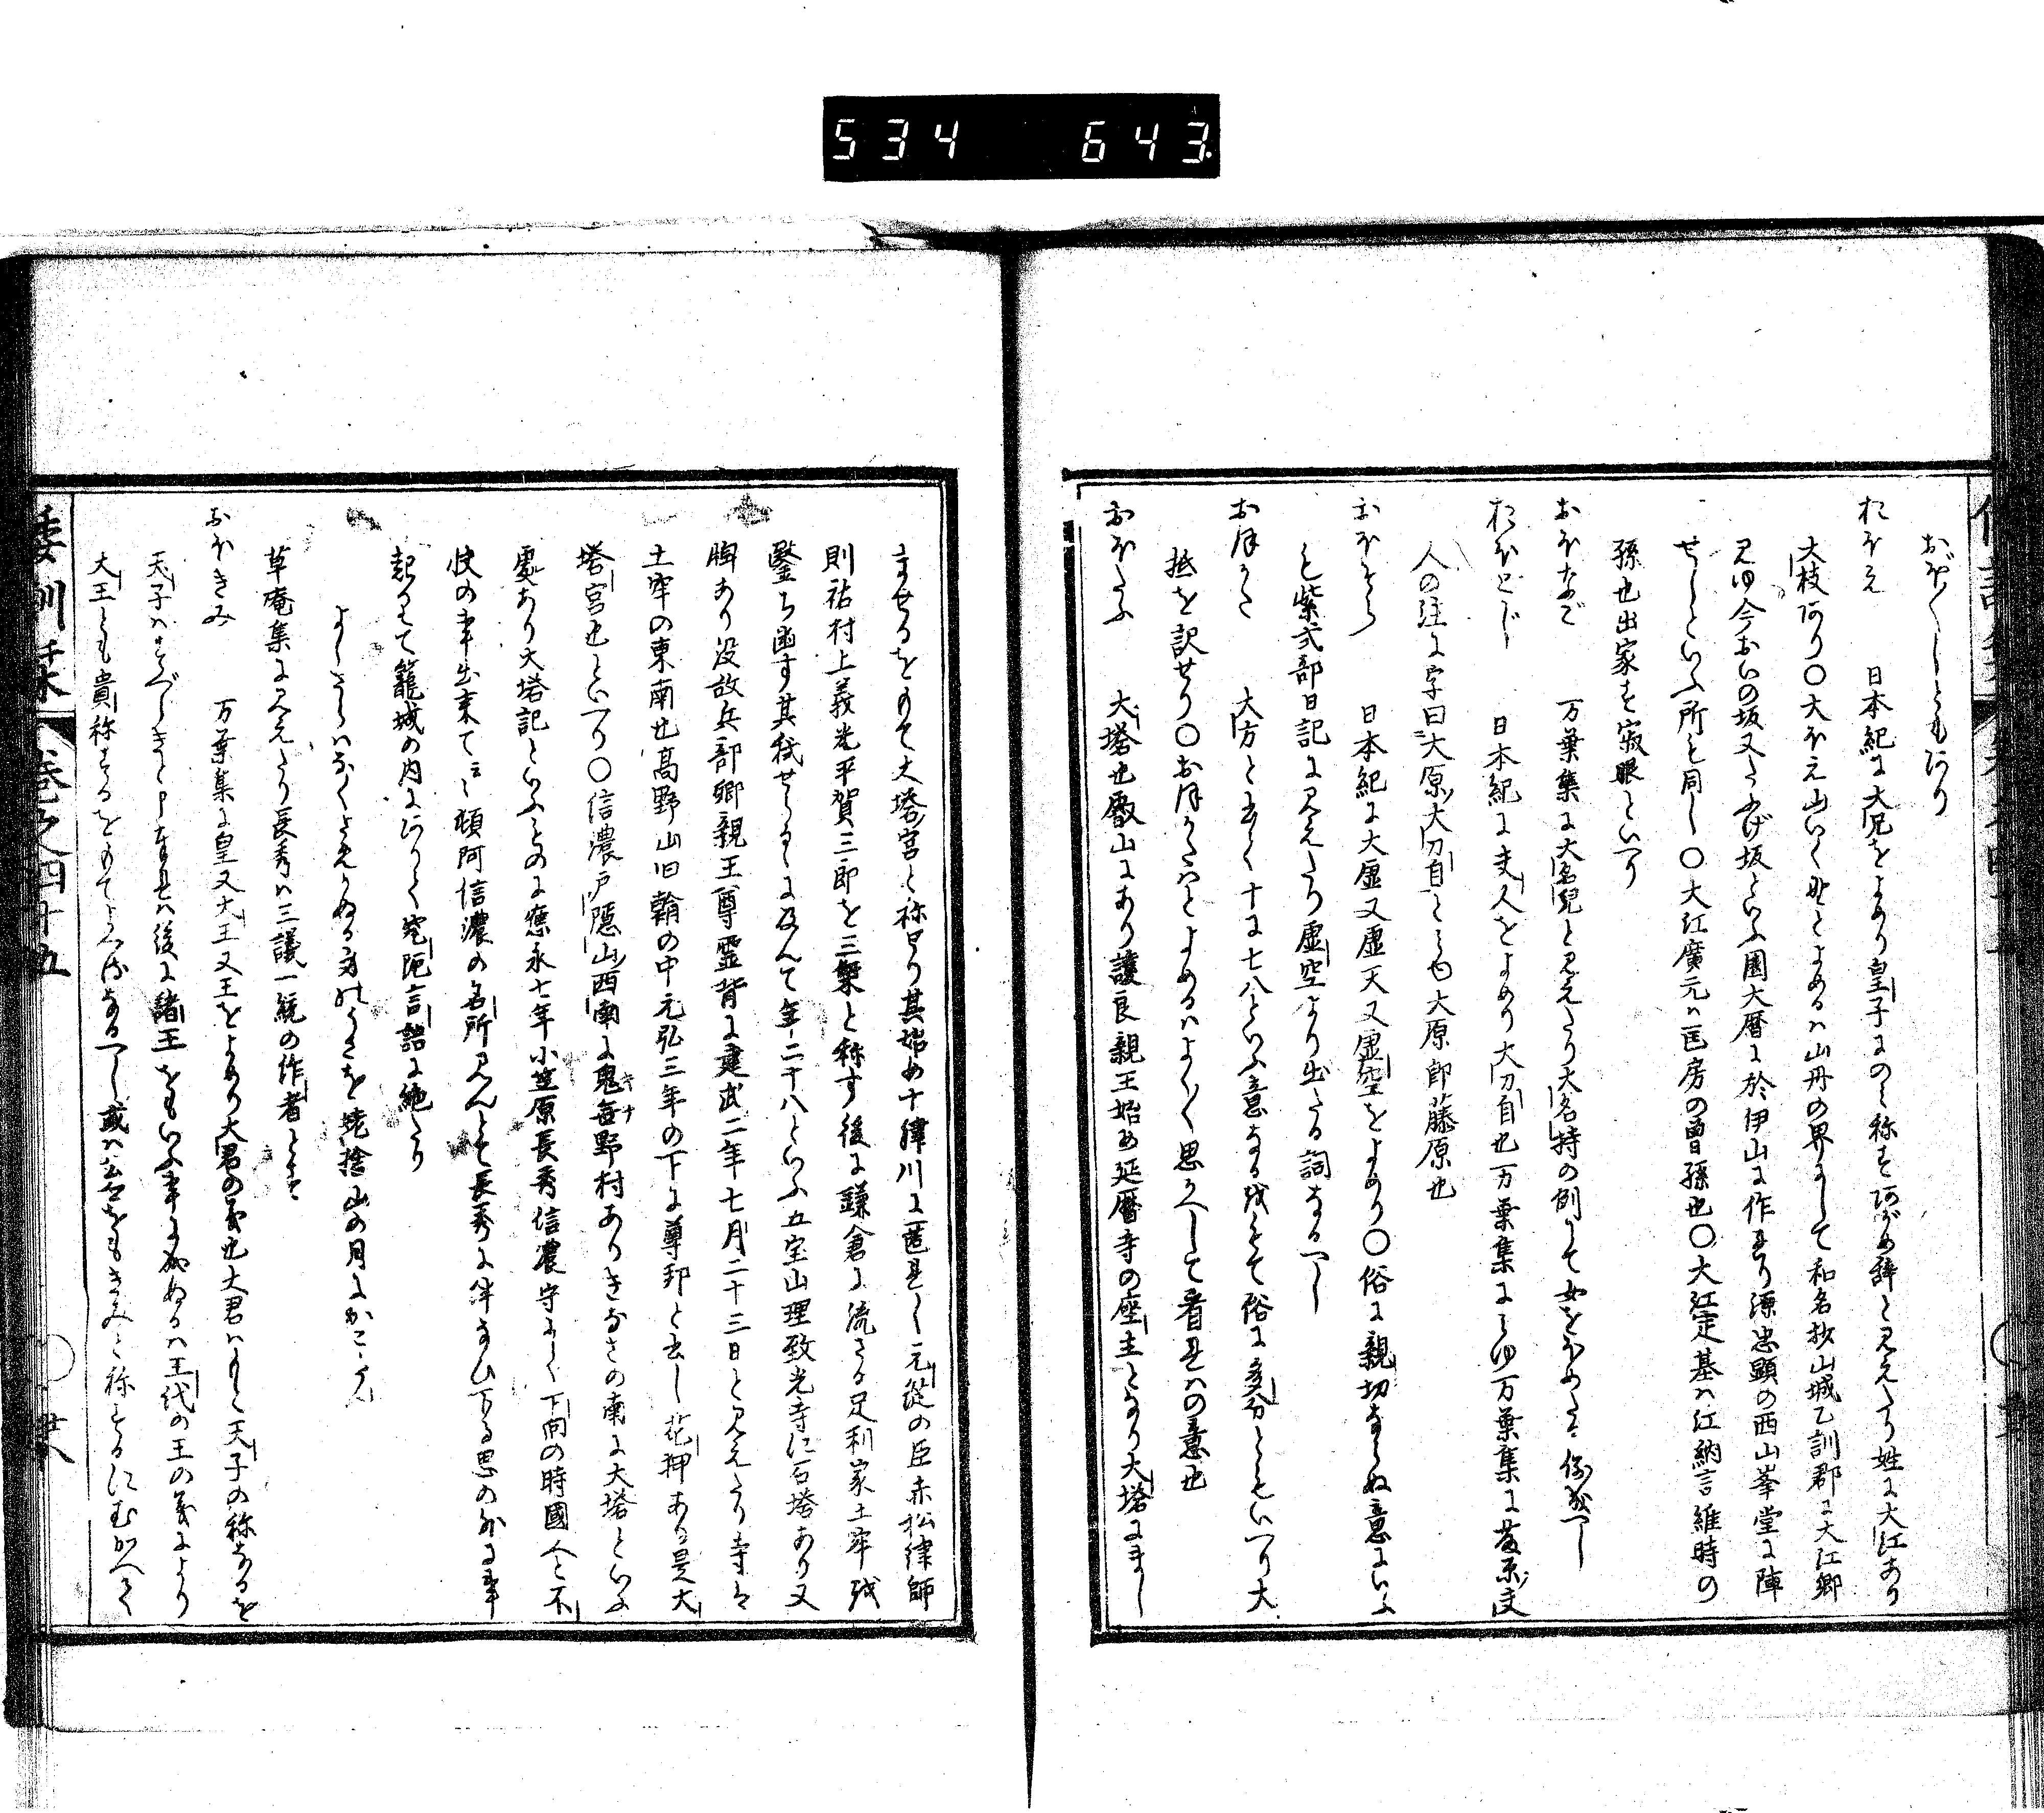 534 643
おぼ〱しともあり
おほえ 日本紀に大兄をよめり皇子にのミ称すあがめ辞と見えたり姓に大江あり
大枝あり〇大ほえ山いく野とよめるハ山丹の界にして和名抄山城乙訓郡に大江郷
見ゆ今おいの坂又たうげ坂といふ園大暦に於伊山に作れり源忠顕の西山峯堂に陣
せしといふ所も同し〇大江廣元ハ匡房の曽孫也〇大江定基ハ江納言維時の
孫也出家を寂眼といへり
おほなご 万葉集に大名兒と見えたり大名持の例にて女をほめたる
おほとじ 日本紀に夫人をよめり大刀自也万葉集にミゆ万葉集に藤原夫
人の注に字曰大原大刀自とミゆ大原即藤原也
おほそら 日本紀に大虚又虚天又虚空をよめり〇俗に親切ならぬ意にいふ
も紫式部日記に見えたり虚空より出たる詞なるへし
おほかた 大方と書く十に七八といふ意なる故もて俗に多分ともいへり大
抵を訳せり〇おほかたハとよめるハよく〱思かへして看れハの意也
おほたふ 大塔也叡山にあり護良親王始め延暦寺の座主となり大塔にまし
ませるをもて大塔宮と称せり其始め十津川に匿れし元従の臣赤松律師
則祐村上義光平賀三郎を三傑と称す後に鎌倉に流さる足利家土牢を
鑿ち幽す其弑せらるゝに及んて年二十八といふ五宝山理致光寺に石塔あり又
牌あり没故兵部卿親王尊霊背に建武二年七月二十三日と見えたり寺は
土牢の東南也高野山旧翰の中元弘三年の下に尊邦と書し花押ある是大
塔宮也といへり〇信濃戸隠山西南に鬼無野村ありきなさの南に大塔といふ
處あり大塔記といふものに應永七年小笠原長秀信濃守にて下向の時國人と不
快の事出来て云々頓阿信濃の名所見んとて長秀に伴なひ下る思の外に事
起りて籠城の内にありて窮陀言語に絶たり
よしさらハなくさめかぬる身のうさを姥捨山の月にかこたん
草庵集に見えたり長秀ハ三議一統の作者とす
おほきみ 万葉集に皇又大王又王をよめり大君の義也大君ハもと天子の称なるを
天子ハすべらきと申奉れハ後に諸王をもいふ事に成ぬるハ王代の王の義により
大王とも貴称するをもてよへるなるへし或ハ書をもきみと称するにむかへて
倭訓栞 巻之四十五 〇 廿八